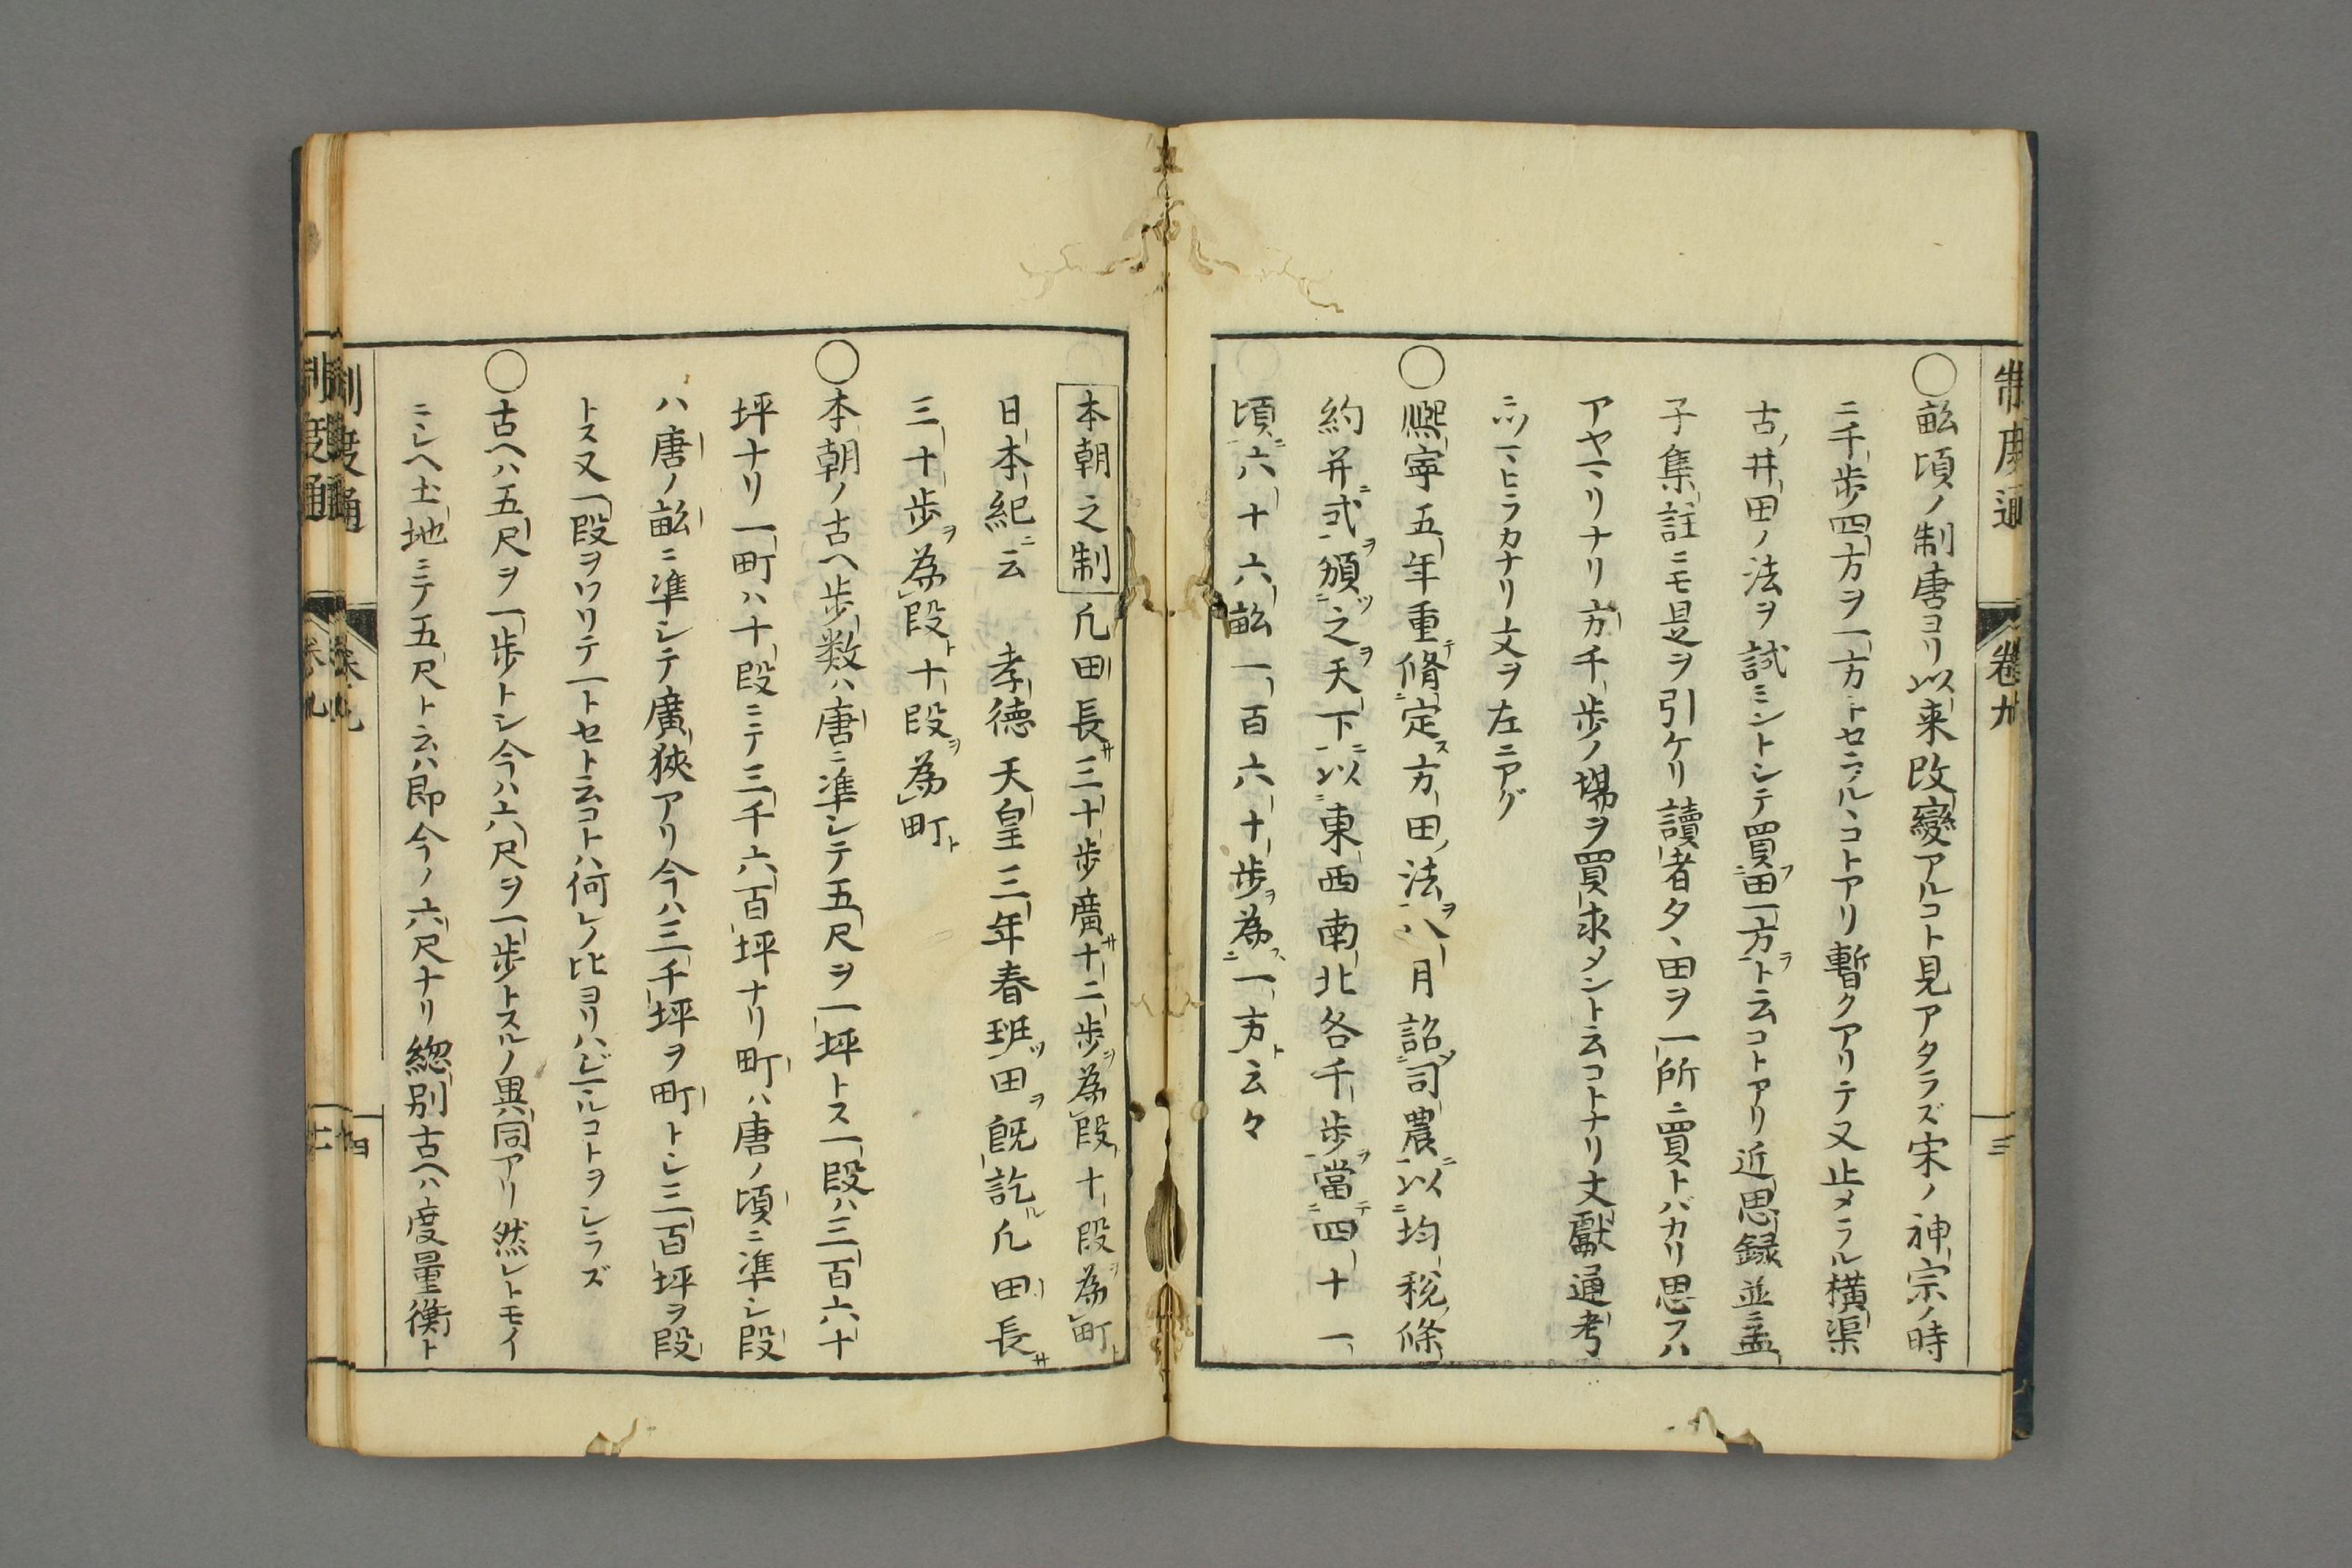 制度通 卷九 三
〇畝頃ノ制唐ヨリ以来改變アルコト見アタラズ宋ノ神宗ノ時
ニ千歩四方ヲ一方トセラル丶コトアリ暫クアリテ又止メラル橫渠
古井田ノ法ヲ試ミントシテ買田一方ト云コトアリ近思録並孟
子集註ニモ是ヲ引ケリ讀者タ丶田ヲ一所ニ買トバカリ思フハ
アヤマリナリ方千歩ノ場ヲ買求メント云コトナリ文獻通考
ニツマヒラカナリ文ヲ左ニアグ
〇熈寧五年重脩定方田法八月詔司農以均税條
約并式頒之天下以東西南北各千歩當四十一
頃六十六畝一百六十歩為一方云々
本朝之制 凡田長三十歩廣十二歩為段十段為町
日本紀云 孝徳天皇三年春班田旣訖凡田長
三十歩為段十段為町
〇本朝ノ古ヘ歩数ハ唐ニ準シテ五尺ヲ一坪トス一段ハ三百六十
坪ナリ一町ハ十段ニテ三千六百坪ナリ町ハ唐ノ頃ニ準シ段
ハ唐ノ畝ニ準シテ廣狹アリ今ハ三千坪ヲ町トシ三百坪ヲ段
トス又一段ヲワリテ一トセト云コトハ何レノ比ヨリハジマルコトヲシラズ
〇古ヘハ五尺ヲ一歩トシ今ハ六尺ヲ一歩トスルノ異同アリ然レトモイ
ニシヘ土地ニテ五尺ト云ハ即今ノ六尺ナリ緫別古ヘハ度量衡ト
制度通 卷九 四